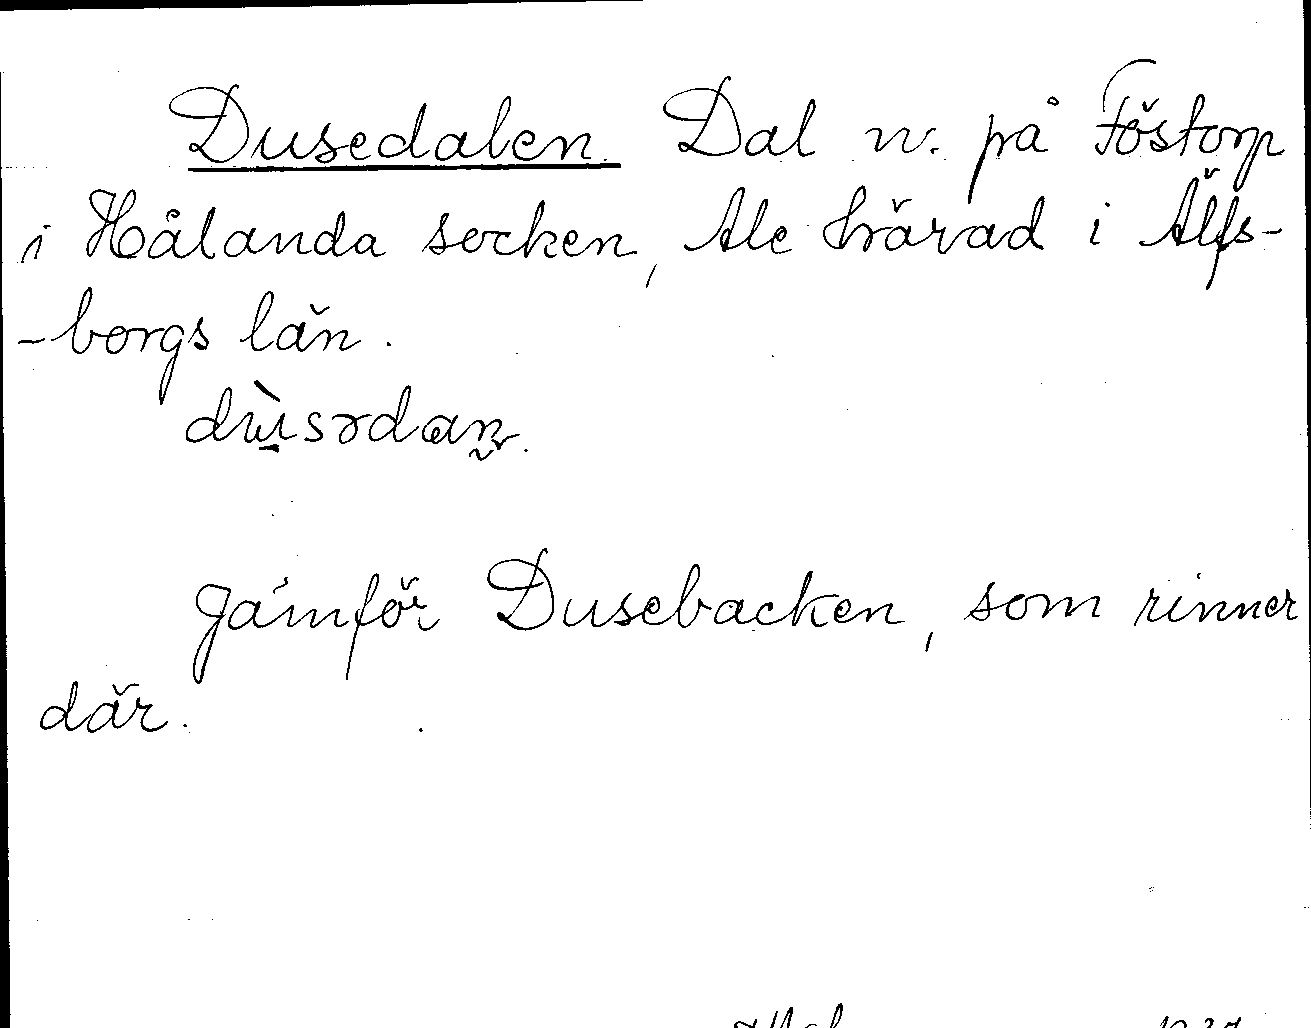 Dusedalen. Dal n. på Föstorp
i Hålanda socken, Ale härad i Älfs-
-borgs län.
dùsədaṇ.
Jämför Dusebäcken, som rinner
där.